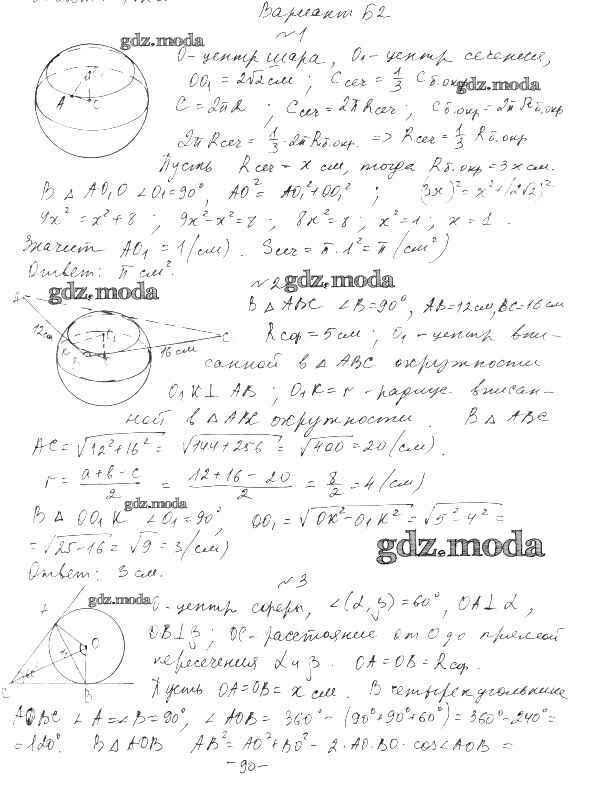 Вариант Б2
№1
gdz.moda
О - центр шара, О₁ - центр сечения,
ОО₁ = 2√2 см ; Cсеч = 1/3 Cб.окр.
gdz.moda
C = 2πR ; Cсеч = 2πRсеч ; Cб.окр. = 2πRб.окр
2πRсеч = 1/3 · 2πRб.окр. => Rсеч = 1/3 Rб.окр
Пусть Rсеч - x см, тогда Rб.окр = 3x см.
В △ AO₁O ∠O₁ = 90°, AO² = AO₁² + OO₁² ; (3x)² = x² + (2√2)²
9x² = x² + 8 ; 9x² - x² = 8 ; 8x² = 8 ; x² = 1 ; x = 1 .
Значит AO₁ = 1 (см) . Sсеч = π · 1² = π (см²)
Ответ: π см².
gdz.moda
№2
gdz.moda
В △ ABC ∠B = 90°, AB = 12 см, BC = 16 см
A
12 см
C
16 см
O₁
Rсф = 5 см ; O₁ - центр впи-
санной в △ ABC окружности
O₁K ⊥ AB ; O₁K = r - радиус вписан-
ной в △ ABC окружности. В △ ABC
AC = √12² + 16² = √144 + 256 = √400 = 20 (см).
r = a + b - c / 2 = 12 + 16 - 20 / 2 = 8/2 = 4 (см)
gdz.moda
В △ OO₁K ∠O₁ = 90°, OO₁ = √OK² - O₁K² = √5² - 4² =
= √25 - 16 = √9 = 3 (см)
gdz.moda
Ответ: 3 см.
№3
gdz.moda
О - центр сферы, ∠(α, β) = 60°, OA ⊥ α,
OB ⊥ β ; OC - расстояние от O до прямой
пересечения α и β . OA = OB = Rсф.
C
B
O
Пусть OA = OB = x см. В четырехугольнике
AOBC ∠A = ∠B = 90°, ∠AOB = 360° - (90° + 90° + 60°) = 360° - 240° =
= 120°. В △ AOB AB² = AO² + BO² - 2 · AO · BO · cos∠AOB =
- 90 -